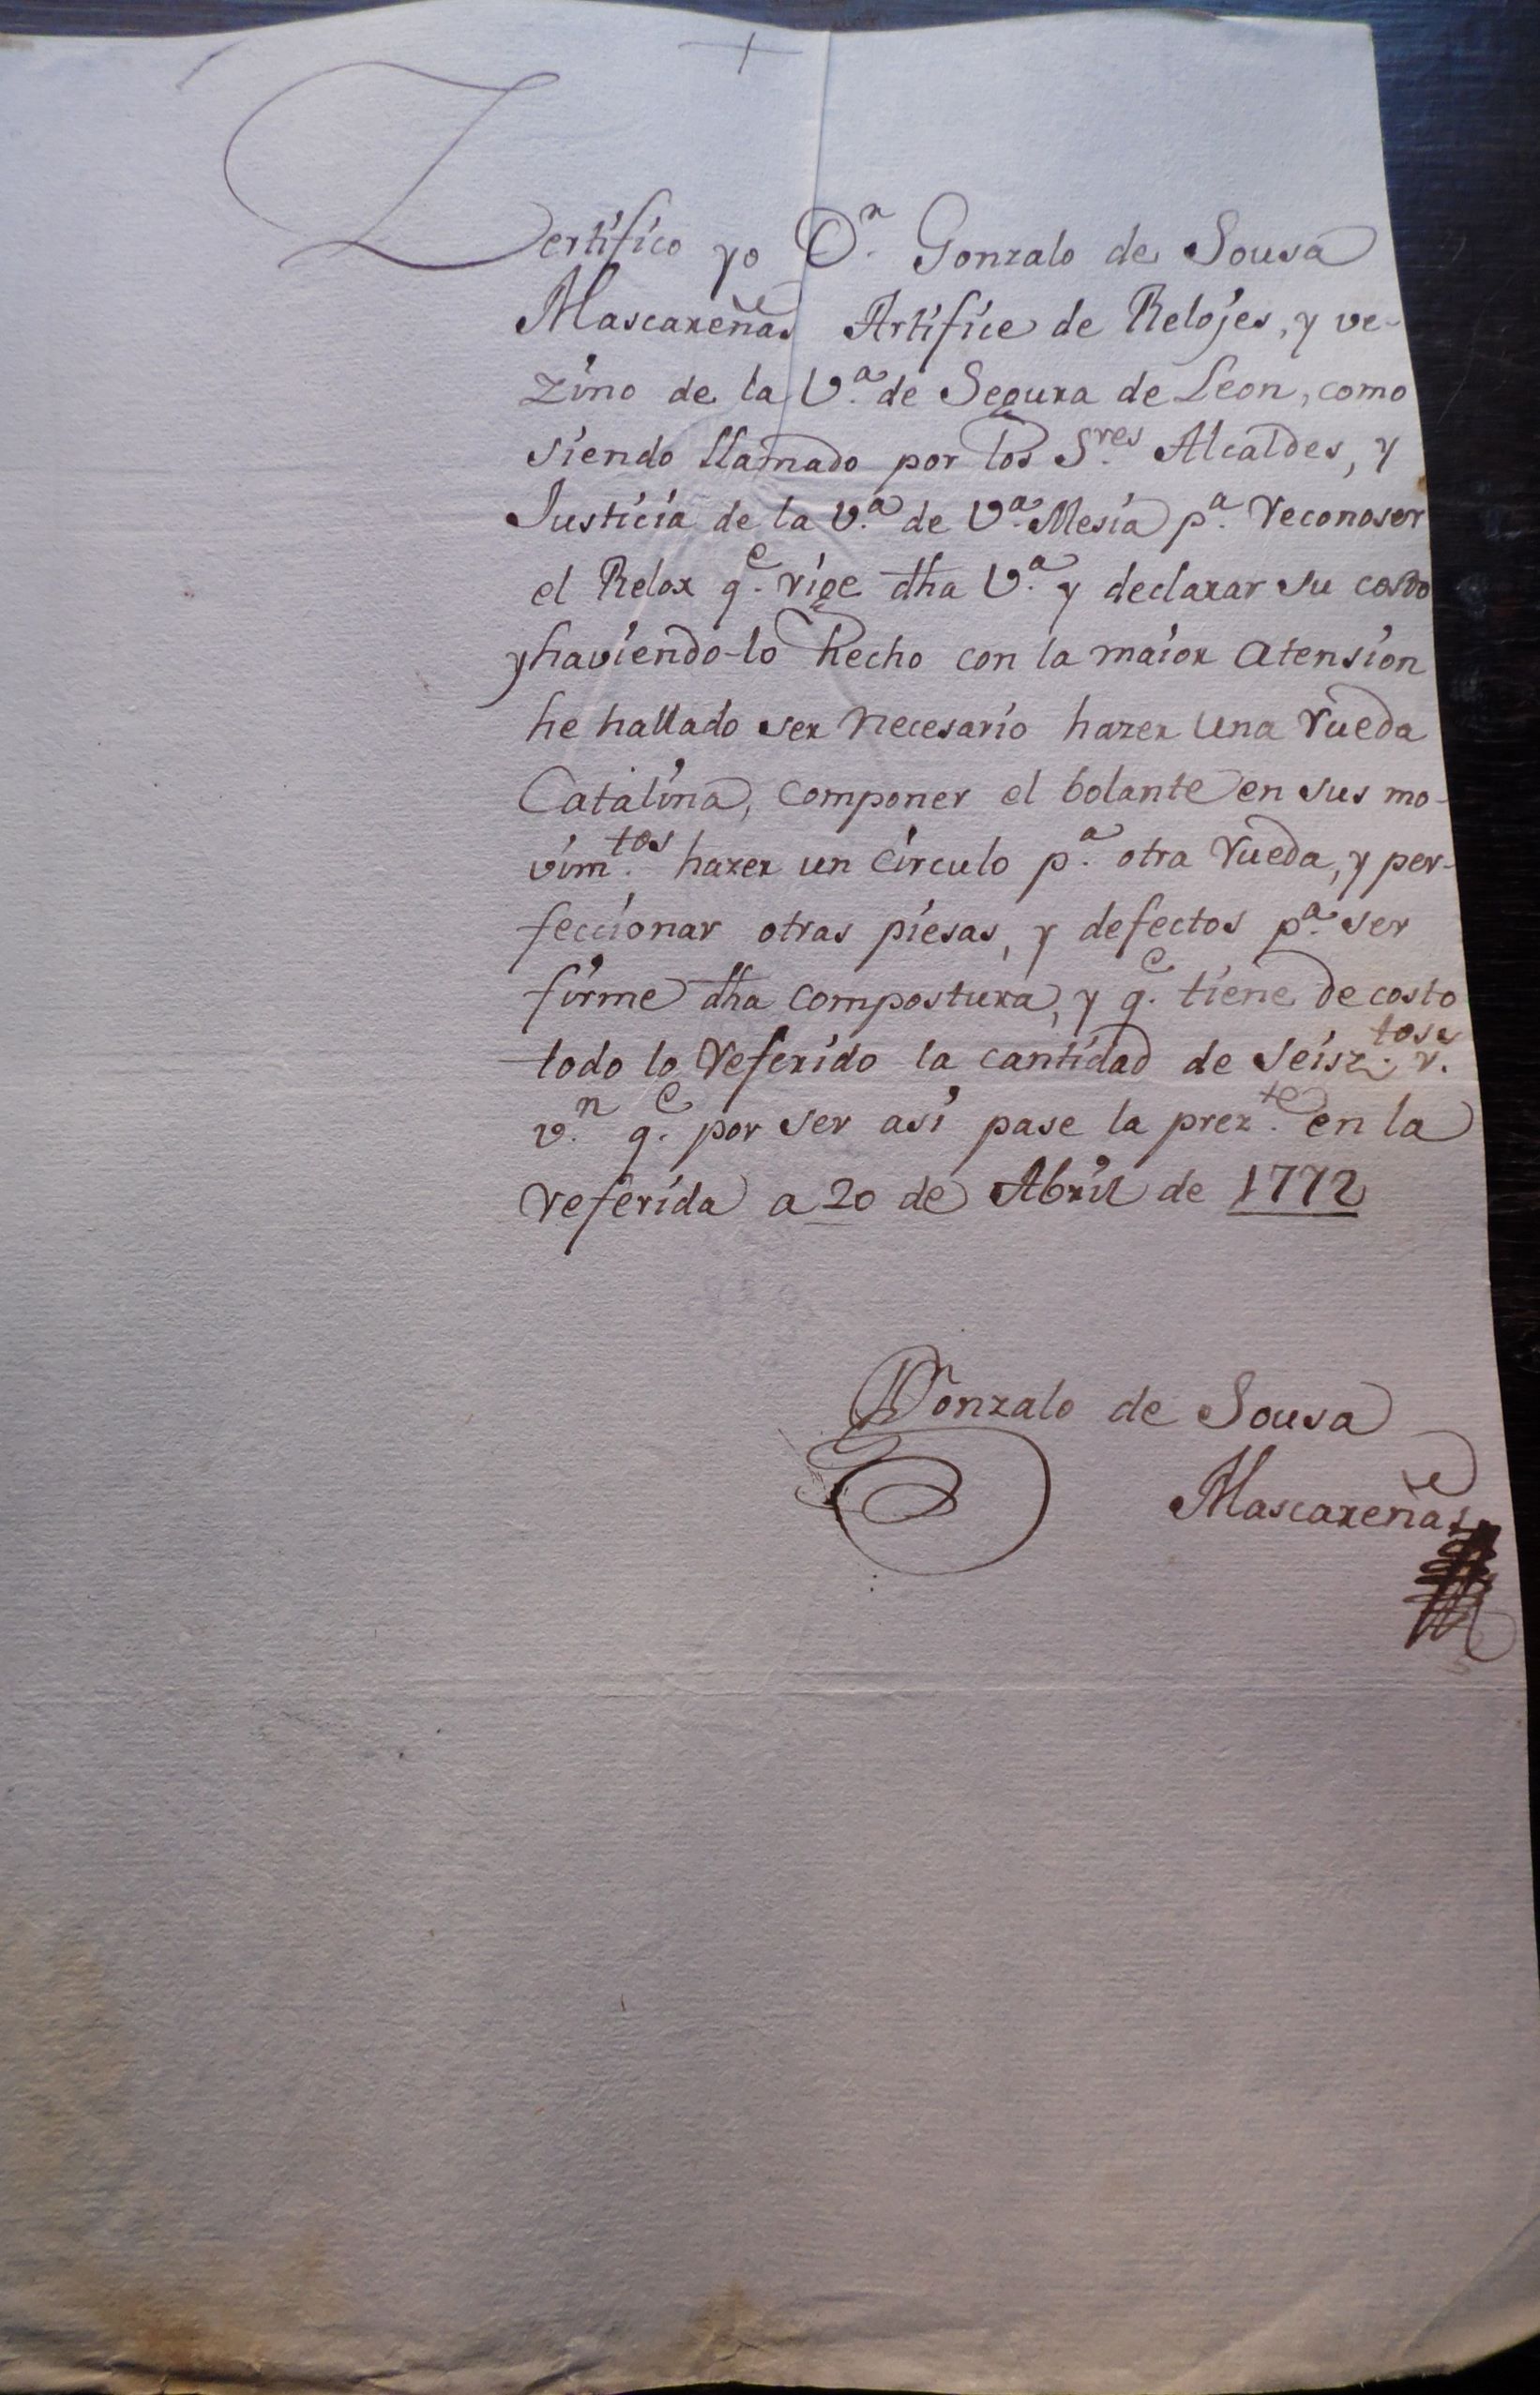 +
Zertifico yo Dn. Gonzalo de Sousa
Mascareñas Artifice de Relojes, y ve-
zino de la Va. de Segura de Leon, como
siendo llamado por los Sres. Alcaldes, y
Justicia de la Va. de Va. Mesia pa. reconoser
el Relox qe. rige dha Va. y declarar su costo
y haviendo-lo hecho con la maior atension
he hallado ser necesario hazer una rueda
Catalina, componer el bolante en sus mo-
vimtos. hazer un circulo pa. otra rueda, y per-
feccionar otras piesas, y defectos pa. ser
firme dha compostura, y qe. tiene de costo
todo lo referido la cantidad de seisztos. rs.
vn. qe. por ser asi pase la prezte. en la
referida a 20 de Abril de 1772
Gonzalo de Sousa
Mascareñas